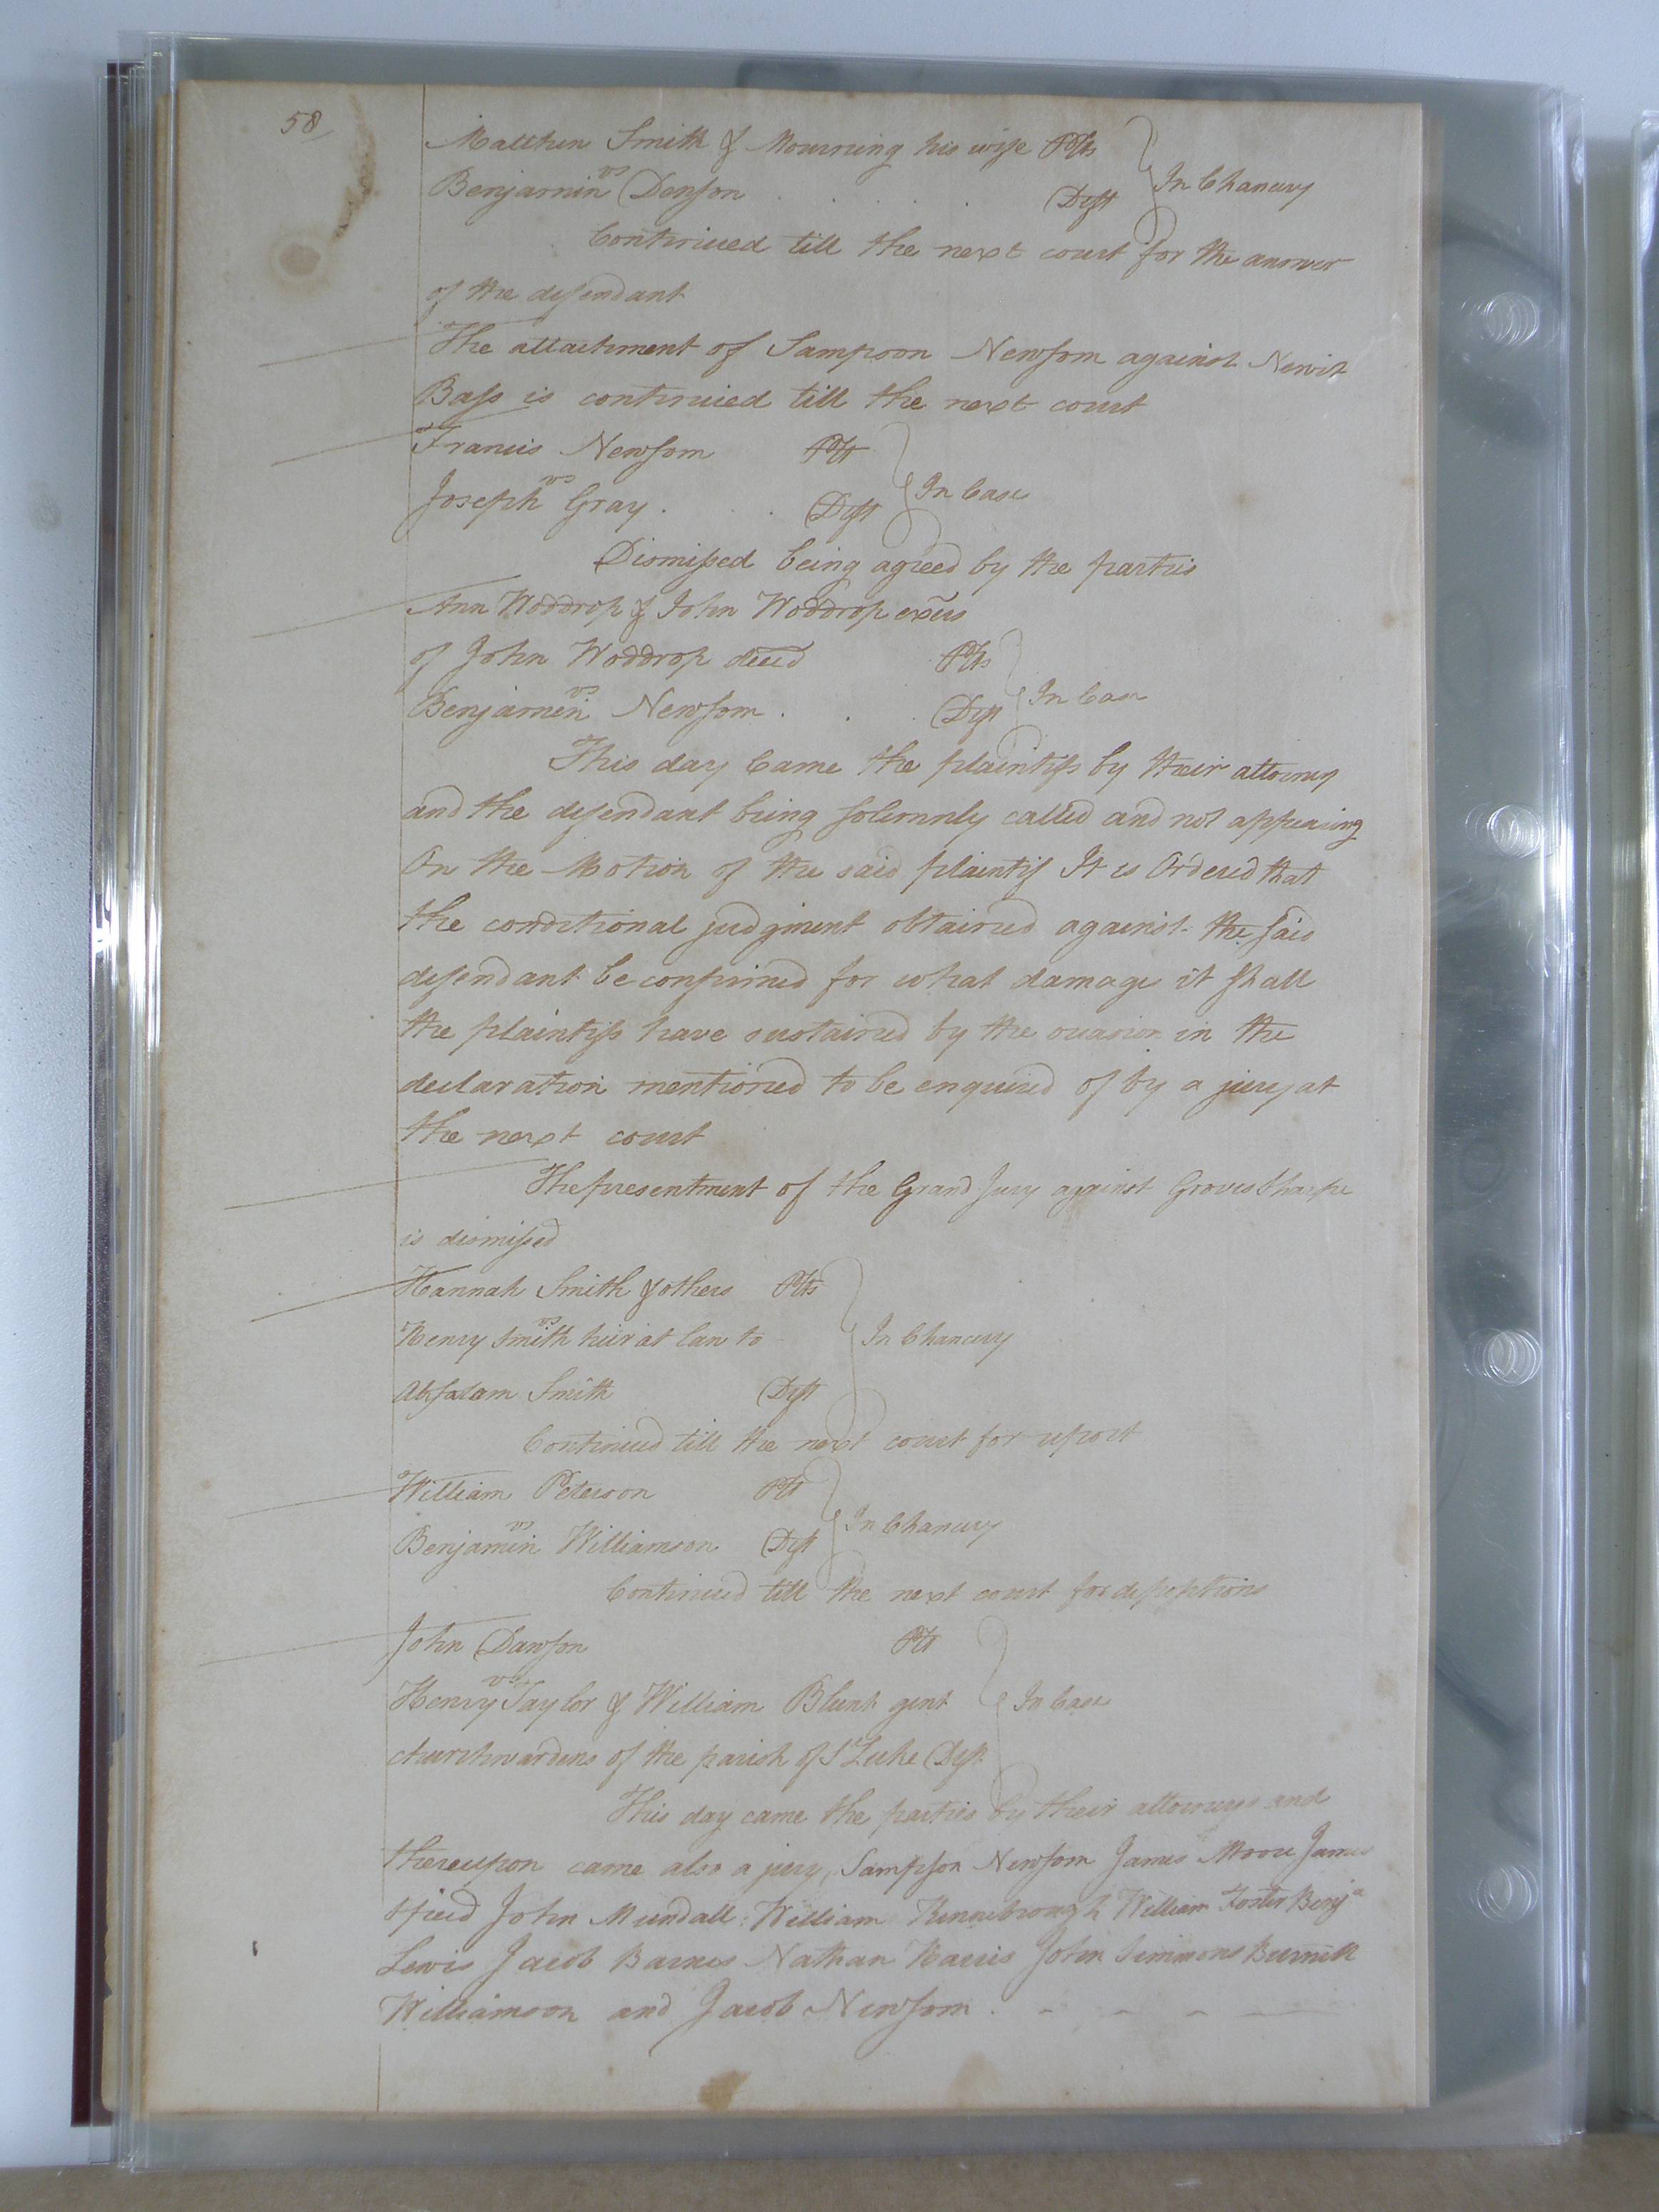 58
Matthew Smith & Mourning his wife Plts
vs
Benjamin Denson . . . . . Deft
In Chancery
Continued till the next court for the answer
of the defendant
The attachment of Sampson Newsom against Newit
Bass is continued till the next court
Francis Newsom Plt
vs
Joseph Gray . . . Deft
In Case
Dismissed being agreed by the parties
Ann Woddrop & John Woddrop exers
of John Woddrop decd Plts
vs
Benjamin Newsom . . . Deft
In Case
This day Came the plaintifs by their attorney
and the defendant being solemnly called and not appearing
On the Motion of the said plaintif It is Ordered that
the conditional judgment obtained against the said
defendant be confirmed for what damage it shall
the plaintifs have sustained by the occasion in the
declaration mentioned to be enquired of by a jury at
the next court
The presentment of the Grand Jury against Groves Sharpe
is dismissed
Hannah Smith & others Plts
vs
Henry Smith heir at Law to
Absalam Smith Deft
In Chancery
Continued till the next court for report
William Peterson Plt
vs
Benjamin Williamson Deft
In Chancery
Continued till the next court for depositions
John Dawson Plt
vs
Henry Taylor & William Blunt gent
churchwardens of the parish of St Luke Deft
In Case
This day came the parties by their attorneys and
thereupon came also a jury, Sampson Newsom James Moore James
Speed John Mundall William Kinnebrough William Foster Benja
Lewis Jacob Barnes Nathan Harris John Simmons Burwell
Williamson and Jacob Newsom . - - - -